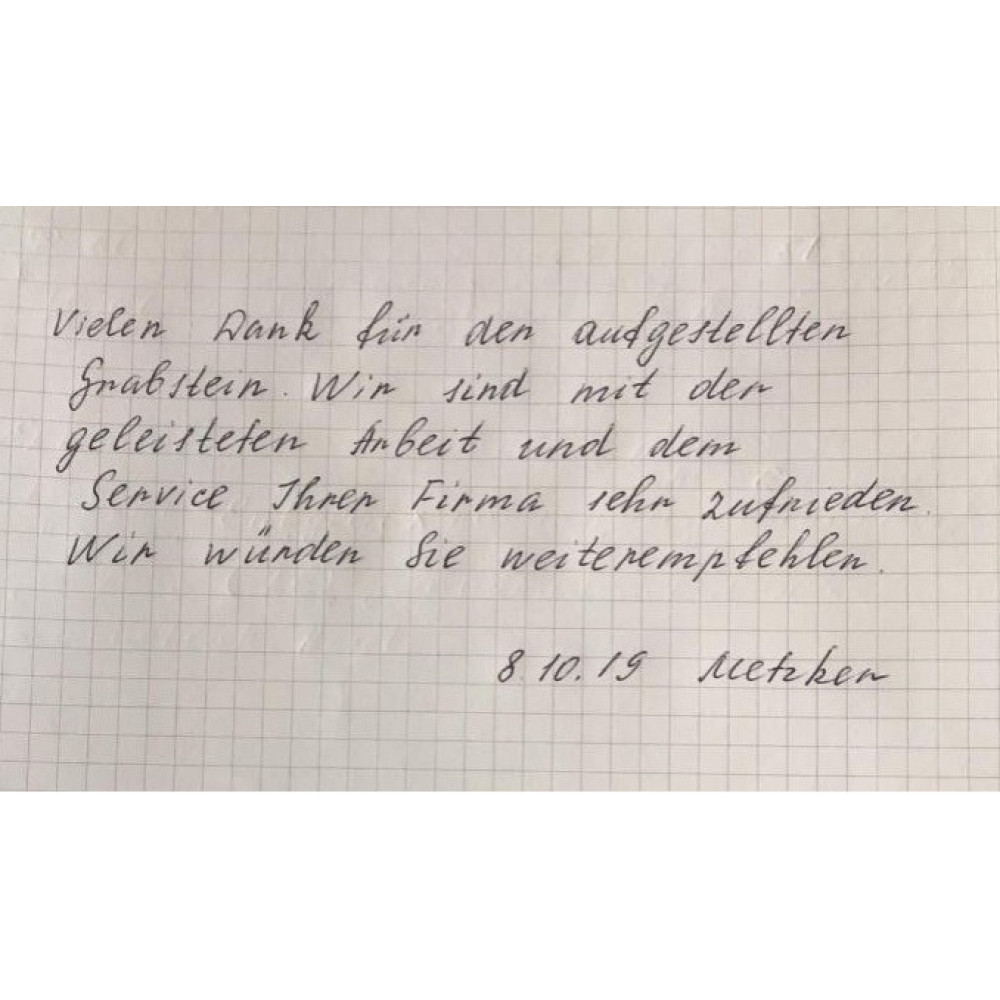 Vielen Dank für den aufgestellten
Grabstein. Wir sind mit der
geleisteten Arbeit und dem
Service Ihrer Firma sehr zufrieden.
Wir würden Sie weiterempfehlen.
8.10.19 Metzker